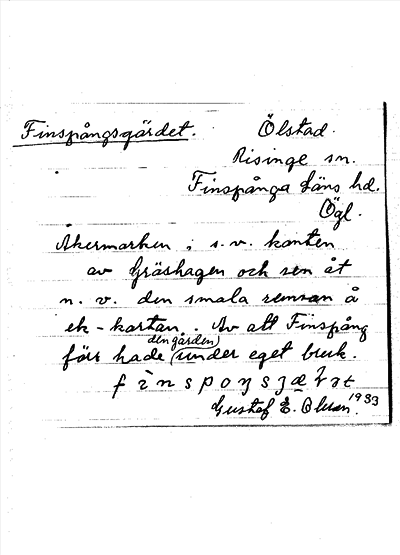 Finspångsgärdet. Ölstad.
Risinge sn.
Finspånga läns hd.
Ögl.
Åkermarken i s. v. kanten
av Gräshagen och sen åt
n. v. den smala remsan å
ek-kartan. Av att Finspång
förr hade (den gården) under eget bruk.
Gustef E. 1933